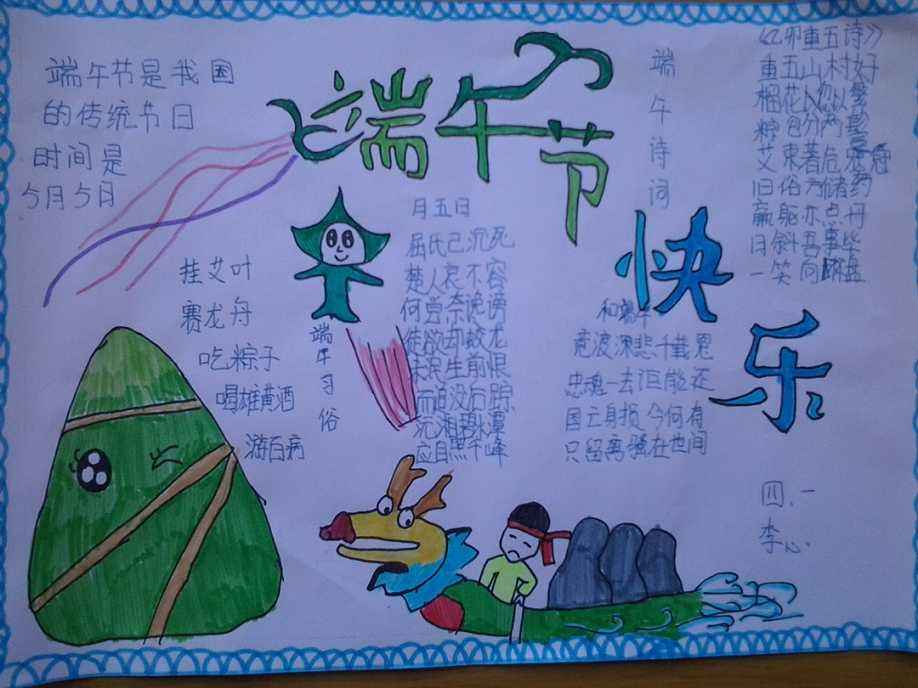 端午节是我国
的传统节日
时间是
5月5月
端午节
快乐
挂艾叶
赛龙舟
吃粽子
喝雄黄酒
游百病
端午习俗
月五日
屈氏已沉死
楚人哀不容
何尝奈谗谤
徒欲却蛟龙
民生前恨
而追没后踪
沅湘碧水潭
应自照千峰
端午诗词
和端午
竞波深悲千载
忠魂一去讵能还
国亡身损今何有
只留离骚在世间
《乙卯重五诗》
重五山村好
榴花忽以繁
粽包分两
艾束著危冠
旧俗方储药
羸躯亦点丹
日斜吾事毕
一笑向杯盘
四、一
李心